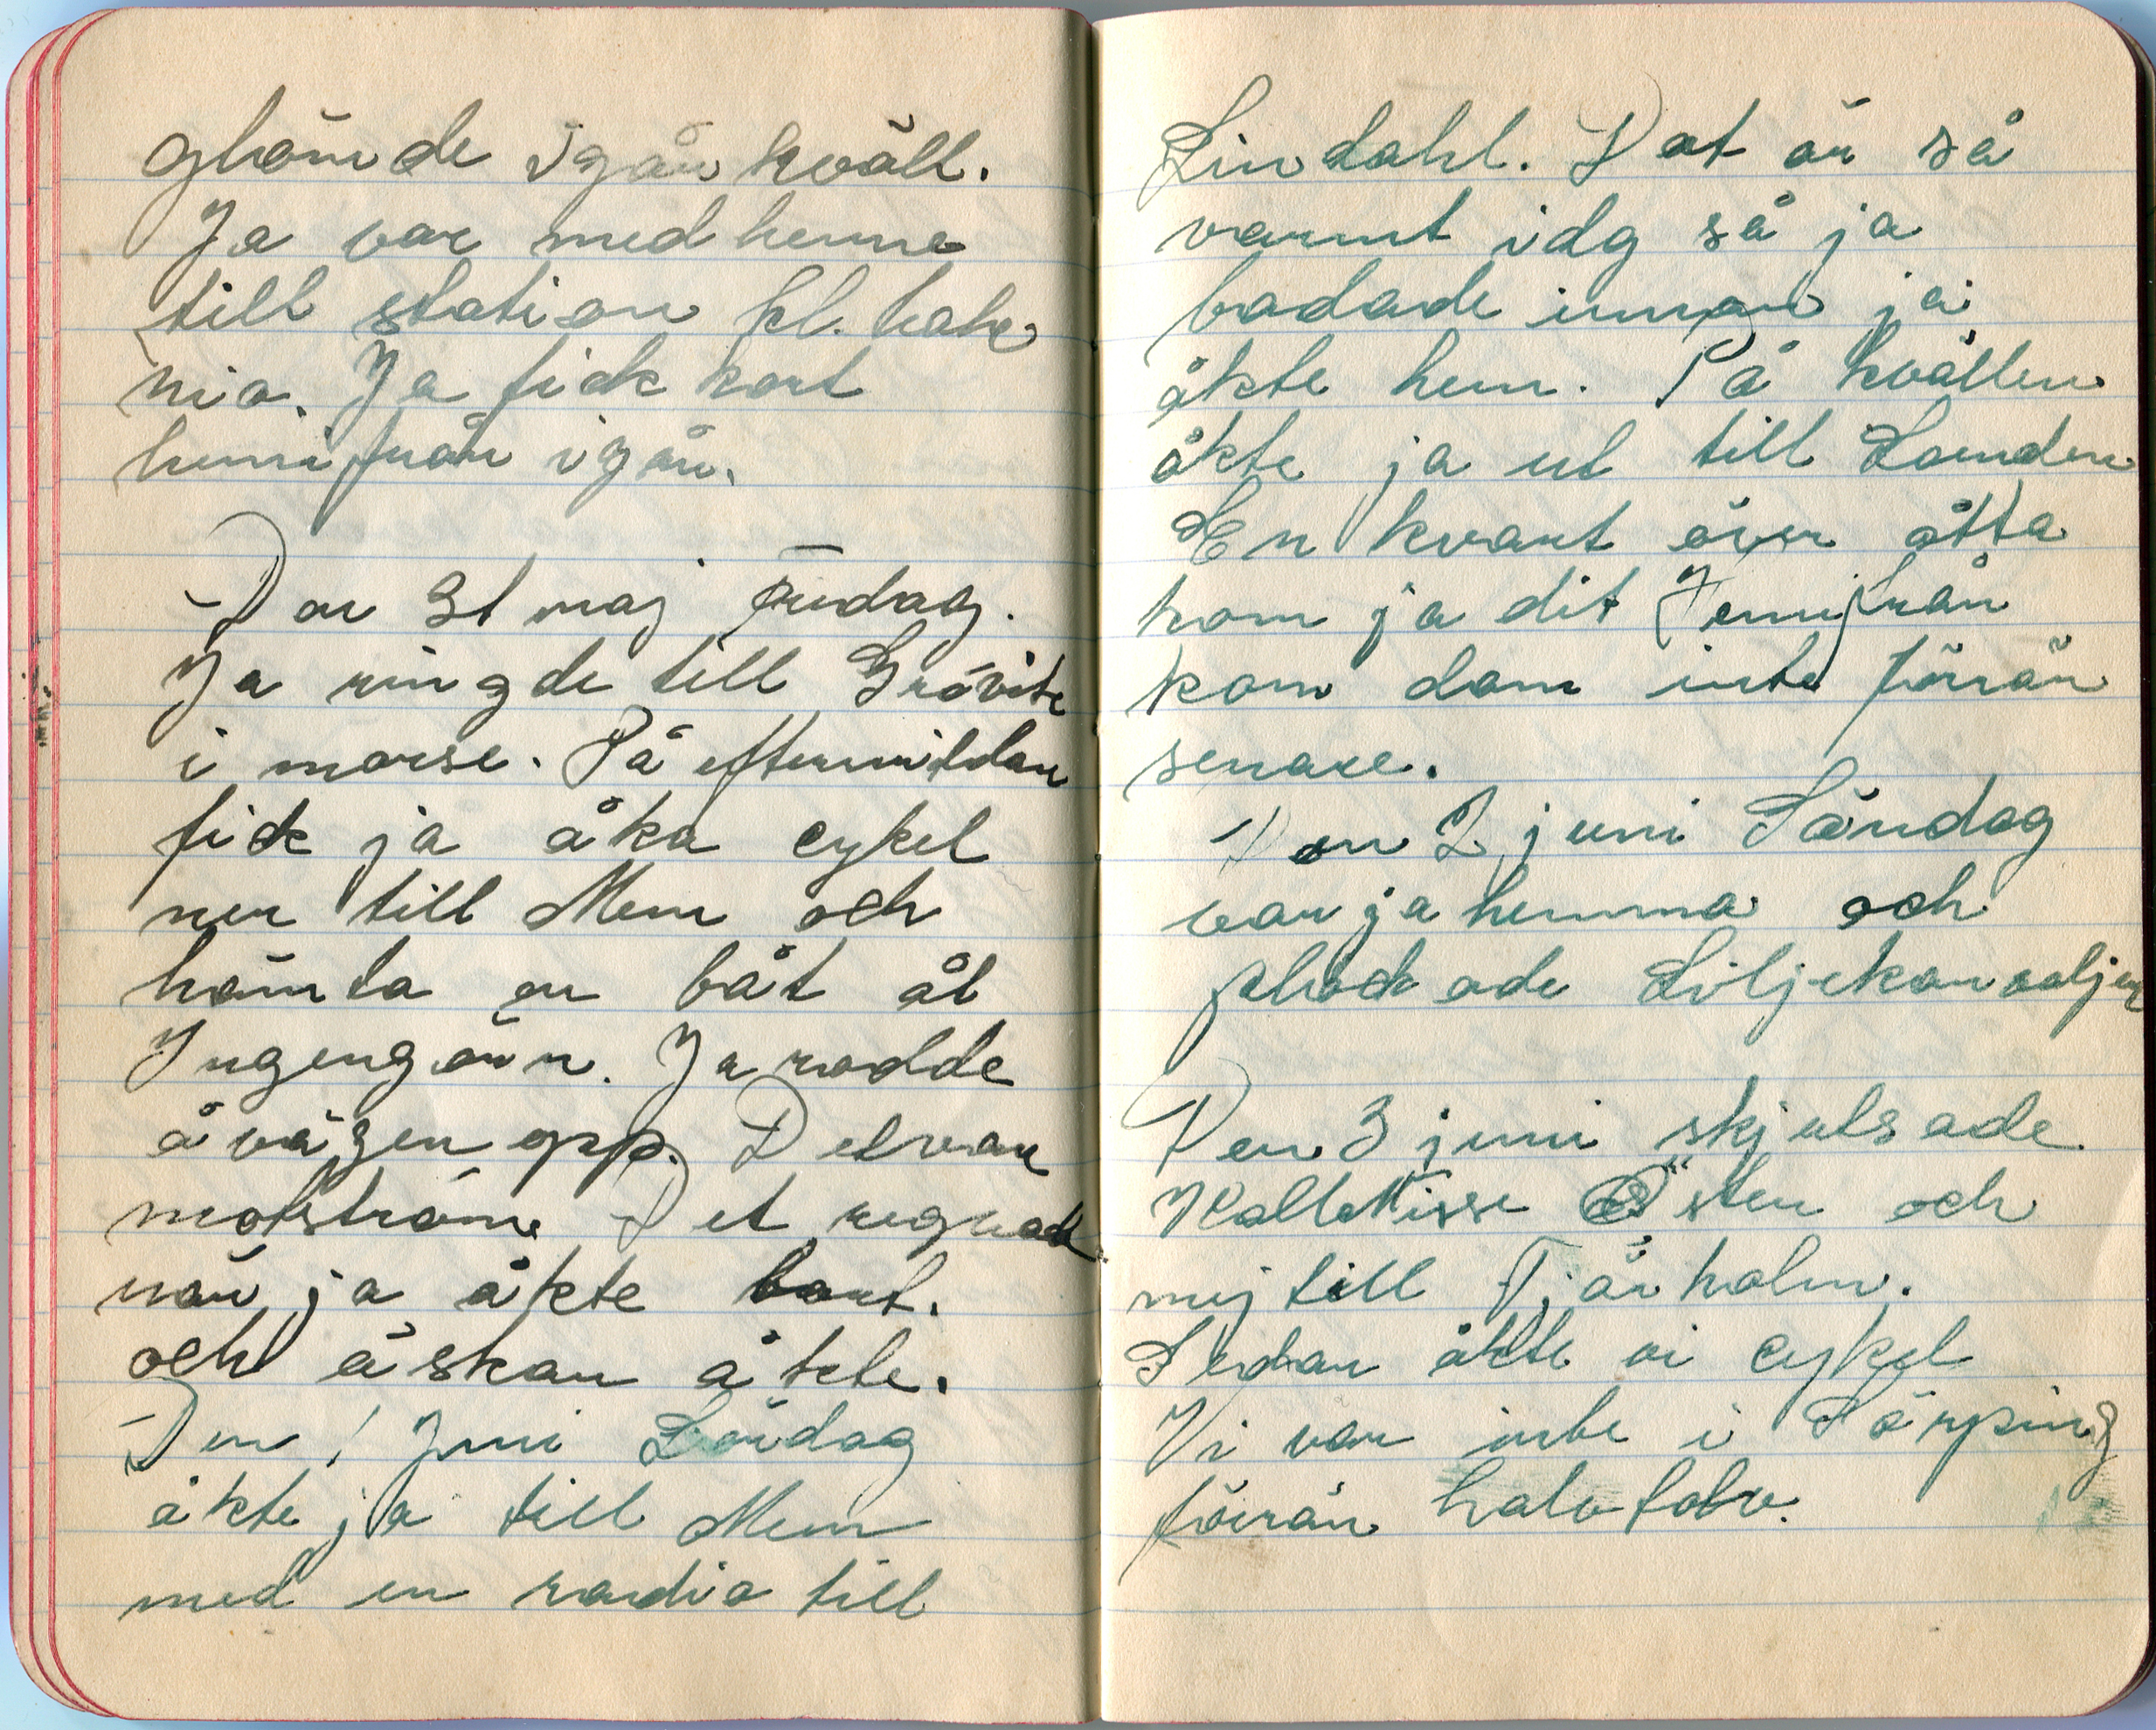 glömde igår kväll.
Ja var med henne
till station kl. halv
nio. Ja fick kort
hemifrån igår.
Den 31 maj fredag.
Ja ringde till
i morse. På eftermiddan
fick ja åka cykel
ner till Mem och
hämta en båt åt
Ja rodde
å vägen opp. Det var
motström. Det regnade
när ja åkte bort.
och åskan åkte.
Den 1 Juni Lördag
åkte ja till Mem
med en radio till
Lindahl. Det är så
varmt idg så ja
badade innan ja
åkte hem. På kvällen
åkte ja ut till Landen
En kvart över åtta
kom ja dit Hemifrån
kom dom inte förrän
senare.
Den 2 juni Söndag
var ja hemma och
plockade Liljekonvaljer
Den 3 juni skjutsade
Kalle Nisse Östen och
mej till Tjärholm.
Sedan åkte vi cykel
Vi var inte i Sörping
förrän halv tolv.